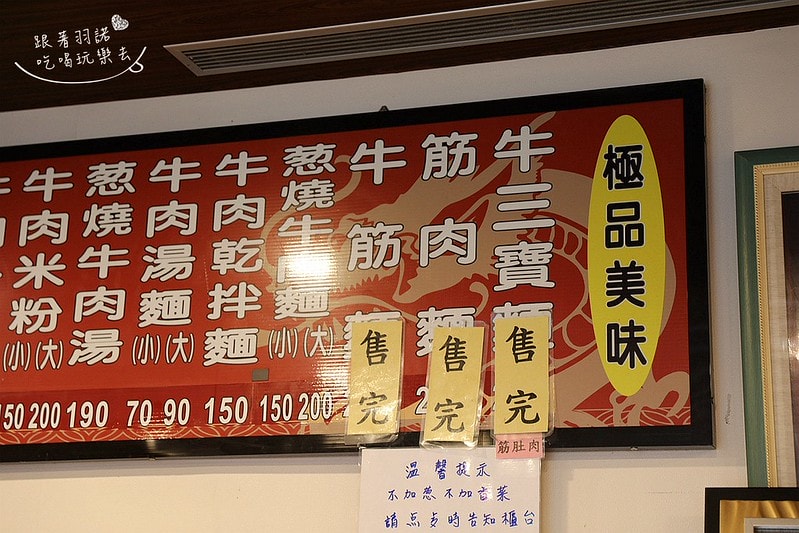 跟著羽諾
吃喝玩樂去
極品美味
牛三寶麵
筋肉麵
牛筋麵
葱燒牛肉麵
(小)(大)
150 200
牛肉乾拌麵
150
牛肉湯麵
(小)(大)
70 90
葱燒牛肉湯
190
牛肉米粉
(小)(大)
150 200
售完
售完
售完
筋肚肉
溫馨提示
不加葱不加香菜
請点歺時告知櫃台